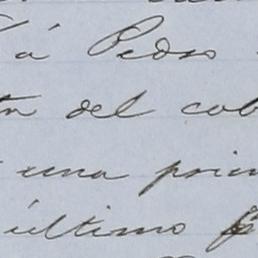 á Pedro
del cob
una prim
último